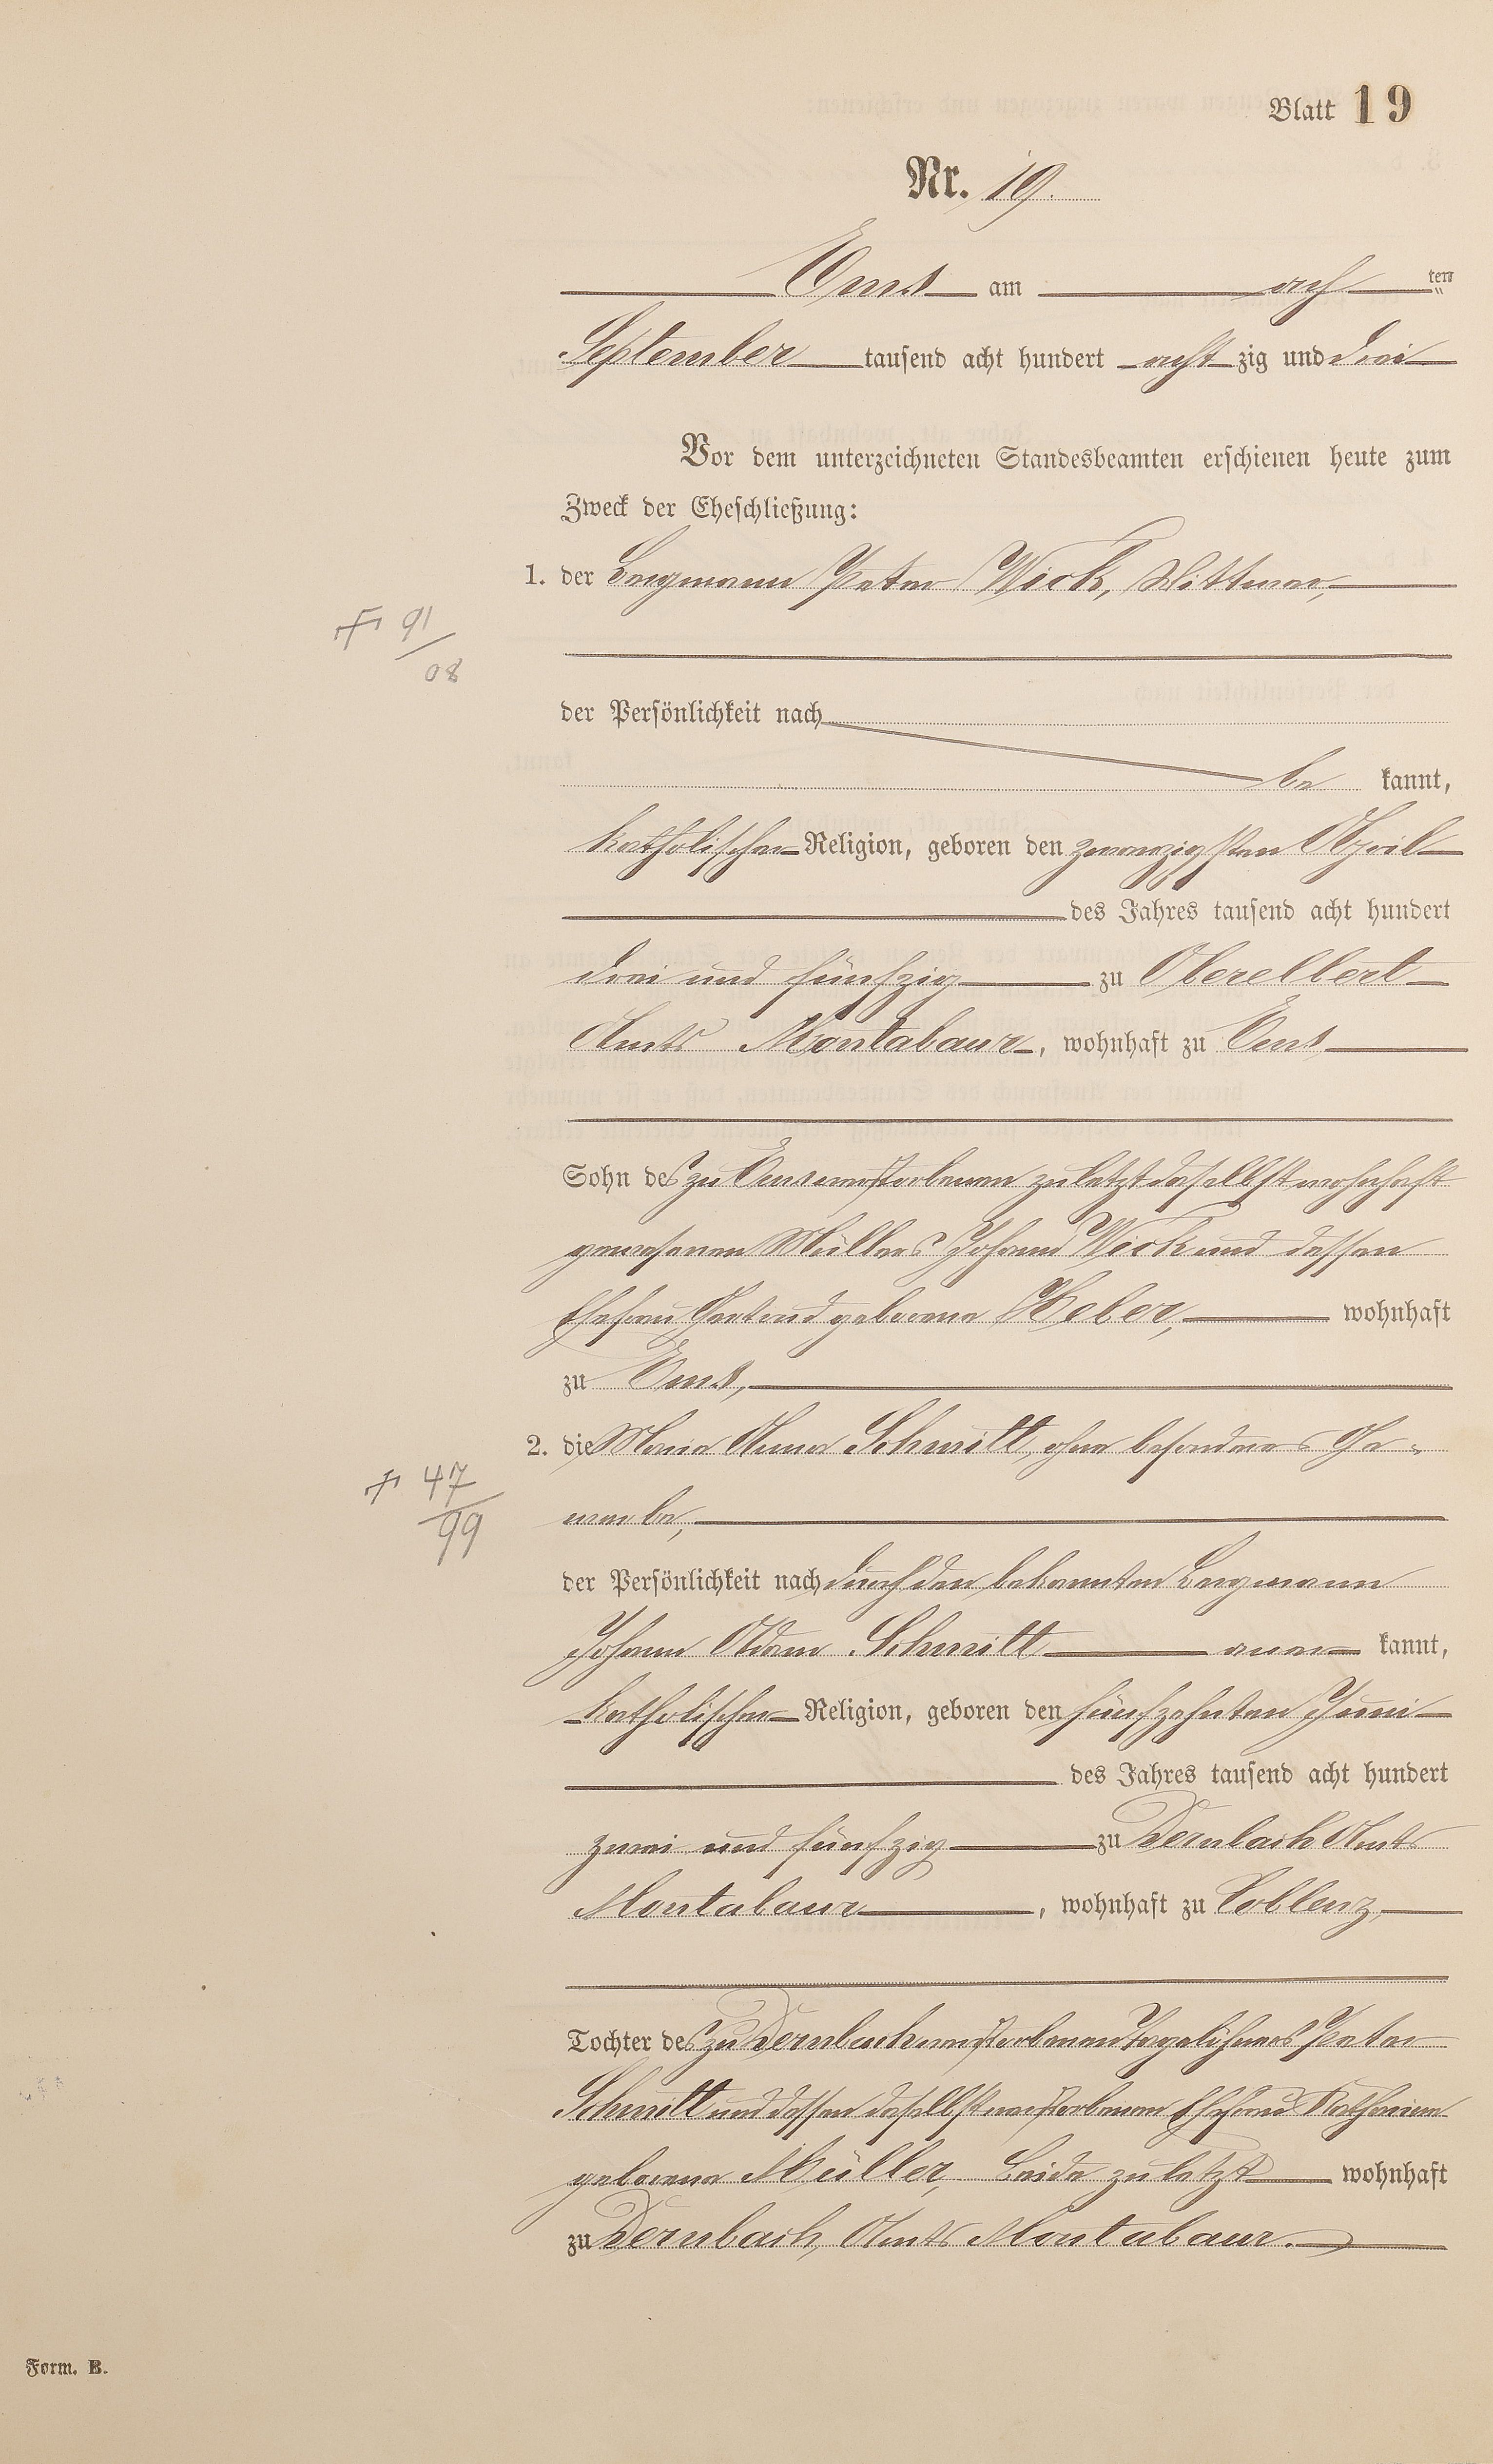 Blatt 19
Nr. 19.
Ems am ach ten
September tausend acht hundert acht zig und drei
Vor dem unterzeichneten Standesbeamten erschienen heute zum
Zweck der Eheschließung:
1. der Bergmann Peter Wick, Wittwer,
† 91/08
der Persönlichkeit nach
be kannt,
katholischer Religion, geboren den zwanzigsten April
des Jahres tausend acht hundert
drei und fünfzig zu Oberelbert
Amts Montabaur, wohnhaft zu Ems
Sohn des zu Ems verstorbenen zuletzt daselbst wohnhaft
gewesenen Müllers Johann Wick und dessen
Ehefrau Gertrud geborene Weber, wohnhaft
zu Ems,
2. die Maria Anna Schmitt, ohne besonderes Ge-
† 47/99
werbe,
der Persönlichkeit nach durch den bekannten Bergmann
Johann Adam Schmitt aner kannt,
katholischer Religion, geboren den fünfzehnten Juni
des Jahres tausend acht hundert
zwei und fünfzig zu Dernbach Amts
Montabaur, wohnhaft zu Coblenz,
Tochter des zu Dernbach verstorbenen Tagelöhners Peter
Schmitt und dessen daselbst verstorbenen Ehefrau Katharina
geborene Müller, beide zuletzt wohnhaft
zu Dernbach, Amts Montabaur.
Form. B.